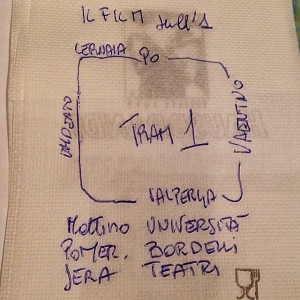 IL FILM sull'1
CERNAIA PO
VALENTINO
TRAM 1
VALPERGA
Mattino UNIVERSITÀ
POMER. BORDELLI
SERA TEATRI